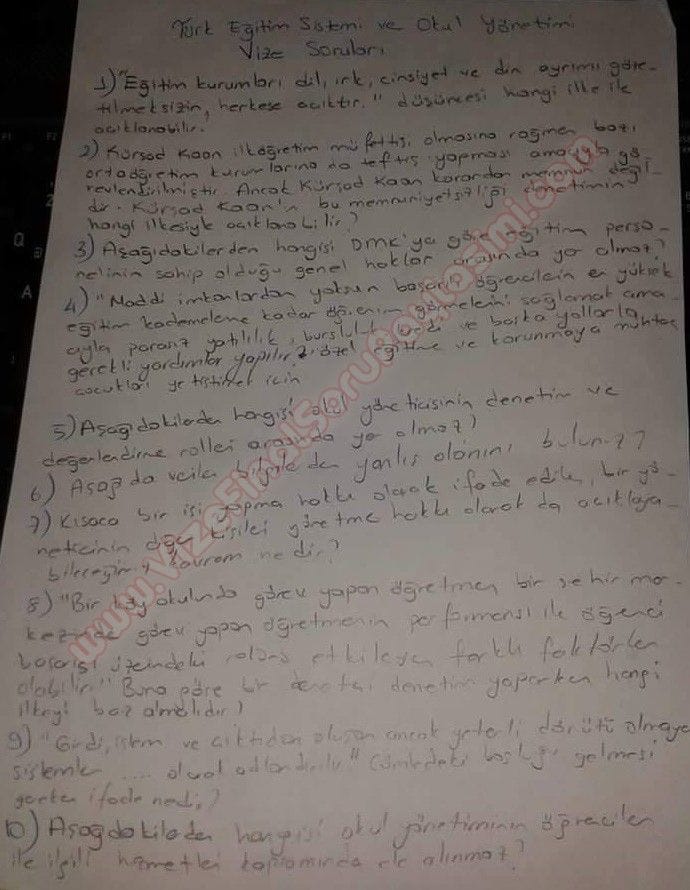 Türk Eğitim Sistemi ve Okul Yönetimi
Vize Soruları
1) "Eğitim kurumları dil, ırk, cinsiyet ve din ayrımı göze-
tilmeksizin, herkese açıktır." düşüncesi hangi ilke ile
açıklanabilir.
2) Kürşad Kaan ilköğretim müfettişi olmasına rağmen bazı
ortaöğretim kurumlarına da teftiş yapması amacıyla gö-
revlendirilmiştir. Ancak Kürşad Kaan karardan memnun değil-
dir. Kürşad Kaan'ın bu memnuniyetsizliği denetimin
hangi ilkesiyle açıklanabilir?
3) Aşağıdakilerden hangisi DMK'ya göre eğitim perso-
nelinin sahip olduğu genel haklar arasında yer almaz?
4) "Maddi imkanlardan yoksun başarılı öğrencilerin en yüksek
eğitim kademelerine kadar öğrenim görmelerini sağlamak ama-
cıyla parasız yatılılık, bursluluk, kredi ve başka yollarla
gerekli yardımlar yapılır. özel eğitime ve korunmaya muhtaç
çocukları yetiştirmek için
5) Aşağıdakilerden hangisi okul yöneticisinin denetim ve
değerlendirme rolleri arasında yer almaz?
6) Aşağıda verilen bilgilerden yanlış olanını bulunuz?
7) Kısaca bir işi yapma hakkı olarak ifade edilen, bir yö-
neticinin diğer kişileri yönetme hakkı olarak da açıklaya-
bileceğimiz kavram nedir?
8) "Bir köy okulunda görev yapan öğretmen bir şehir mer-
kezinde görev yapan öğretmenin performansı ile öğrenci
başarısı üzerindeki rolünü etkileyen farklı faktörler
olabilir." Buna göre bir denetçi denetim yaparken hangi
ilkeyi baz almalıdır?
9) "Girdi, işlem ve çıktıdan oluşan ancak yeterli dönütü olmayan
sistemler .... olarak adlandırılır." Cümledeki boşluğa gelmesi
gereken ifade nedir?
10) Aşağıdakilerden hangisi okul yönetiminin öğrenciler
ile ilgili hizmetleri kapsamında ele alınmaz?
www.VizeFinalSoruPaylasimi.com